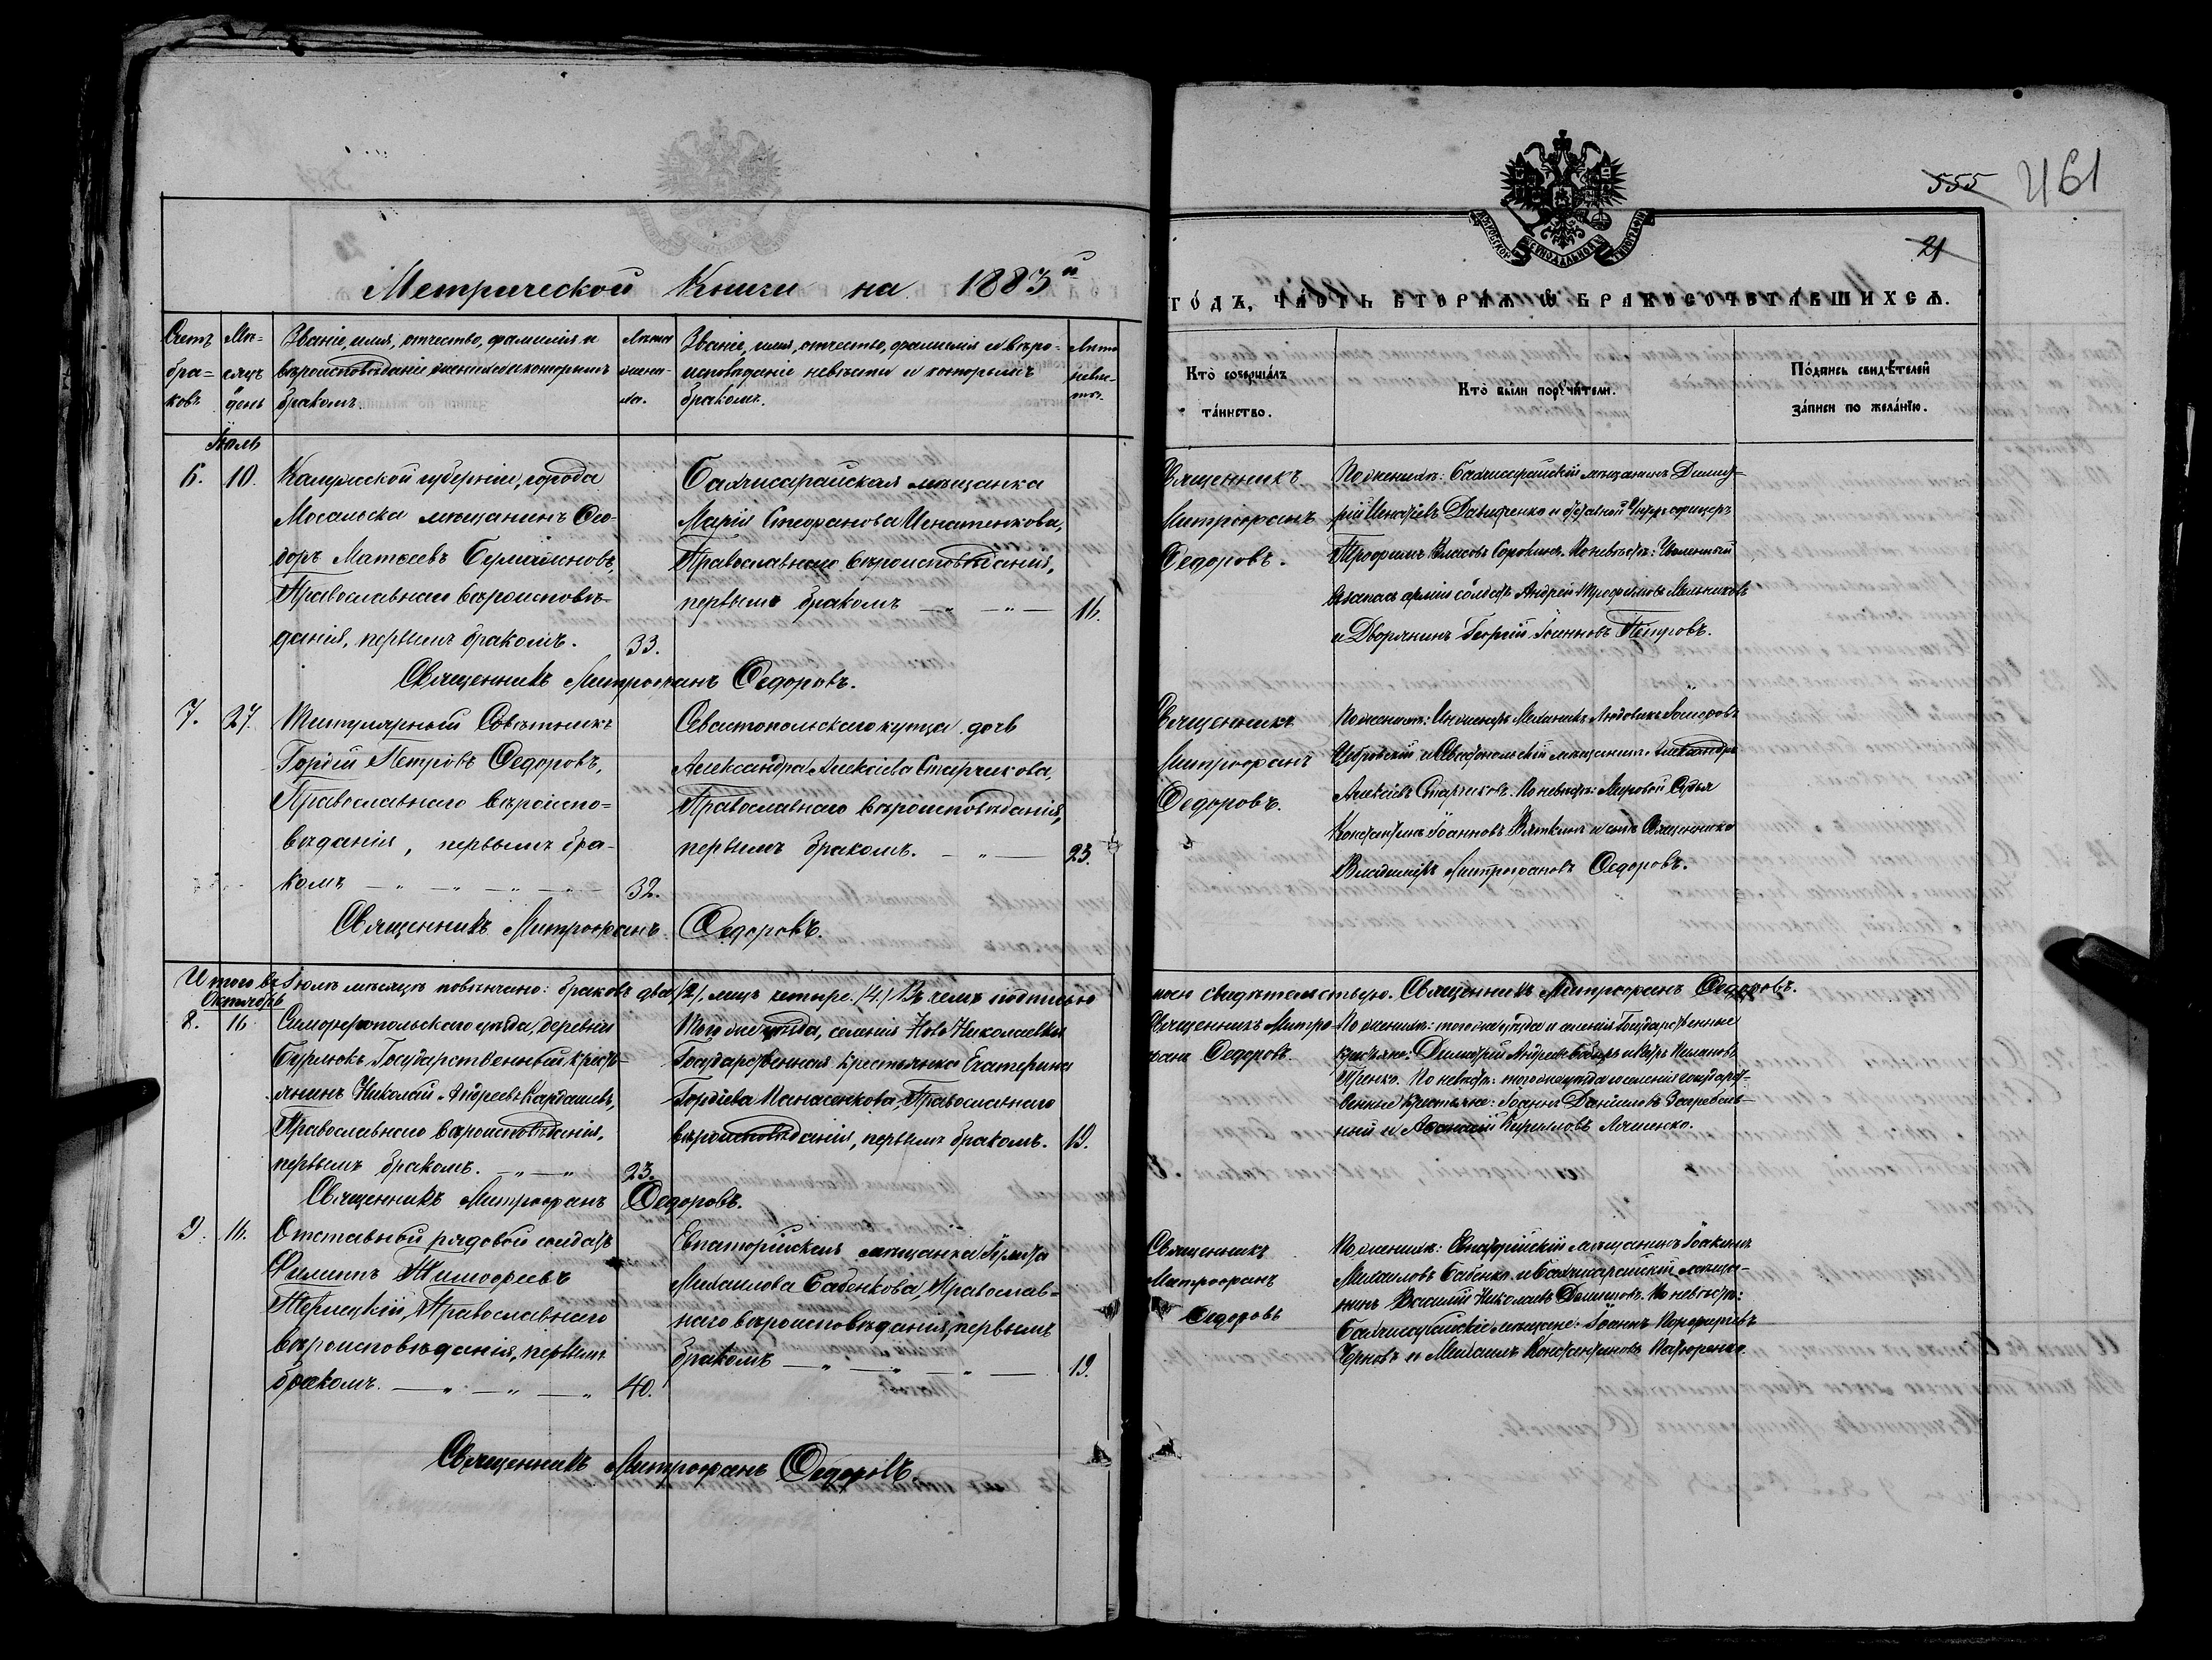 555 461
21
Метрической Книги на 1883й
ГОДЪ, ЧАСТЬ ВТОРАЯ Ѿ БРАКОСОЧЕТАВШИХСЯ.
Счетъ бра=ковъ
Мѣ=сяцъ день
Званіе, имя, отчество, фамилія и
вѣроисповѣданіе жениха и которымъ
бракомъ.
Лѣта
жени-
ха.
Званіе, имя, отчество, фамилія и вѣро-
исповѣданіе невѣсты и которымъ
бракомъ.
Лѣта
невѣс-
ты.
Кто совершалъ
таинство.
Кто были поручители.
Подпись свидѣтелей
записи по желанію.
Іюль
6. 10.
Калужской губерніи, города
Мосальска мѣщанинъ Ѳео-
доръ Матѳеевъ
Православнаго вѣроисповѣ-
данія, первымъ бракомъ. 33.
Бахчисарайская мѣщанка
Марія Стефанова Игнатенкова,
Православнаго вѣроисповѣданія,
первымъ бракомъ — „ — „ — 16.
Священникъ
Митрофанъ
Ѳедоровъ.
По женихѣ: Бахчисарайскій мѣщанинъ Димит-
рій Игнатіевъ Давиденко и отставной Унтеръ-офицеръ
Трофимъ Власовъ Сорокинъ. По невѣстѣ: Уволенный
въ запасъ арміи солдатъ Андрей Трофимовъ Мельниковъ
и Дворянинъ Георгій Іоанновъ Петровъ.
Священникъ Митрофанъ Ѳедоровъ.
7. 27.
Титулярный Совѣтникъ
Гордій Петровъ Ѳедоровъ,
Православнаго вѣроиспо-
вѣданія, первымъ бра-
комъ — „ — „ — „ — 32.
Севастопольскаго купца дочь
Александра Алексіева Старчикова,
Православнаго вѣроисповѣданія,
первымъ бракомъ. — „ — 23.
Священникъ
Митрофанъ
Ѳедоровъ.
По женихѣ: Инженеръ Механикъ Людовикъ
и Севастопольскій мѣщанинъ Александръ
Алексіевъ Старчиковъ. По невѣстѣ: Мировой Судья
Константинъ Іоанновъ Вяткинъ и сынъ Священника
Владиміръ Митрофановъ Ѳедоровъ.
Священникъ Митрофанъ Ѳедоровъ.
Итого въ Іюлѣ мѣсяцѣ повѣнчано: браковъ два /2/, лицъ четыре. /4./ Въ чемъ подписью
моею свидѣтельствую. Священникъ Митрофанъ Ѳедоровъ.
Октябрь
8. 16
Симферопольскаго уѣзда, деревни
Бурлюкъ, Государственный кресть-
янинъ Николай Андреевъ Кардашевъ,
Православнаго вѣроисповѣданія,
первымъ бракомъ. — „ — „ 23.
Того же уѣзда, селенія Ново Николаевки
Государственная крестьянка Екатерина
Гордіева Панасенкова, Православнаго
вѣроисповѣданія, первымъ бракомъ. 19.
Священникъ Митро-
фанъ Ѳедоровъ.
По женихѣ: того же уѣзда и селенія Государственные
крестьяне: Димитрій Андреевъ и Петръ
По невѣстѣ: того же уѣзда и селенія государст-
венные крестьяне: Іоаннъ Даніиловъ Загребель-
ный и Аѳанасій Кирилловъ Ляшенко.
Священникъ Митрофанъ Ѳедоровъ.
9. 16.
Отставной рядовой солдатъ
Филиппъ Тимофеевъ
Терлецкій, Православнаго
вѣроисповѣданія, первымъ
бракомъ. — „ — „ — „ 40.
Евпаторійская мѣщанка
Михаилова Бабенкова, Православ-
наго вѣроисповѣданія, первымъ
бракомъ — „ — „ — 19.
Священникъ
Митрофанъ
Ѳедоровъ
По женихѣ: Евпаторійскій мѣщанинъ Іоакимъ
Михаиловъ Бабенко и Бахчисарайскій мѣща-
нинъ Василій Николаевъ По невѣстѣ:
Бахчисарайскіе мѣщане: Іоаннъ Порфиріевъ
Черновъ и Михаилъ Константиновъ
Священникъ Митрофанъ Ѳедоровъ.